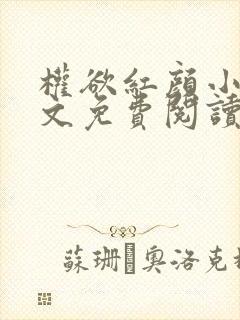 權欲紅顏小
文免費閱讀
蘇珊·奧洛克